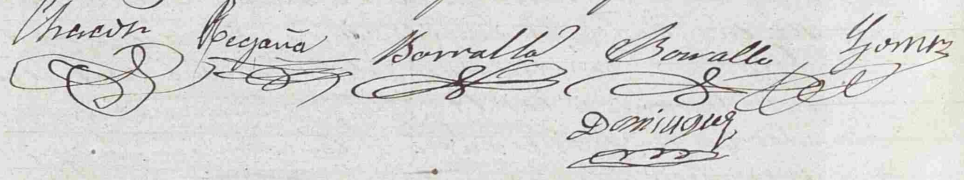 Chacón Regaña Borrallo Borrallo Gomez
Dominguez